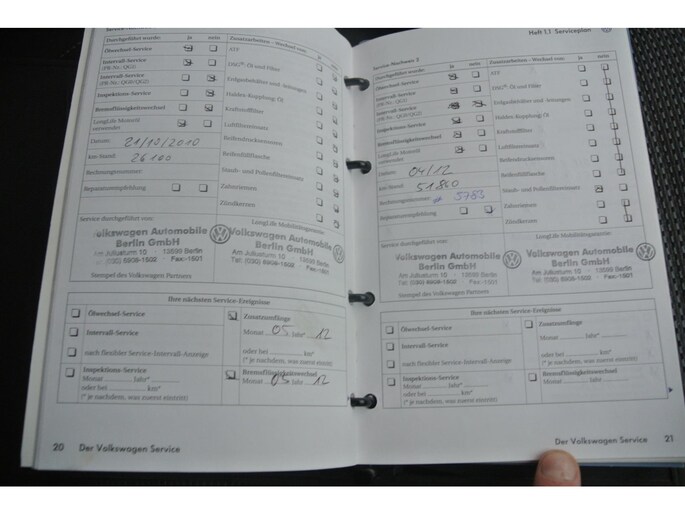 Durchgeführt wurde: ja nein
Ölwechsel-Service
Intervall-Service
(PR-Nr.: QG1)
Intervall-Service
(PR-Nr.: QG0/QG2)
Inspektions-Service
Bremsflüssigkeitswechsel
LongLife Motoröl
verwendet
Datum: 21/10/2010
km-Stand: 26100
Rechnungsnummer:
Reparaturempfehlung
Zusatzarbeiten - Wechsel von: ja nein
ATF
DSG®-Öl und Filter
Erdgasbehälter und -leitungen
Haldex-Kupplung Öl
Kraftstofffilter
Luftfiltereinsatz
Reifendruckensoren
Reifenfüllflasche
Staub- und Pollenfiltereinsatz
Zahnriemen
Zündkerzen
LongLife Mobilitätsgarantie
Service durchgeführt von:
Volkswagen Automobile
Berlin GmbH
Am Juliusturm 10 · 13599 Berlin
Tel: (030) 8908-1502 Fax:-1501
Volkswagen Automobile
Berlin GmbH
Am Juliusturm 10 13599 Berlin
Tel: (030) 8908-1502 Fax:-1501
Stempel des Volkswagen Partners
Ihre nächsten Service-Ereignisse
Ölwechsel-Service
Intervall-Service
nach flexibler Service-Intervall-Anzeige
Inspektions-Service
Monat Jahr*
oder bei km*
(* je nachdem, was zuerst eintritt)
Zusatzumfänge
Monat 05 Jahr 12
oder bei km*
(* je nachdem, was zuerst eintritt)
Bremsflüssigkeitswechsel
Monat 05 Jahr 12
20 Der Volkswagen Service
Heft 1.1 Serviceplan
Service-Nachweis 2
Durchgeführt wurde: ja nein
Ölwechsel-Service
Intervall-Service
(PR-Nr.: QG1)
Intervall-Service
(PR-Nr.: QG0/QG2)
Inspektions-Service
Bremsflüssigkeitswechsel
LongLife Motoröl
verwendet
Datum: 04/12
km-Stand: 51860
Rechnungsnummer: 5783
Reparaturempfehlung
Zusatzarbeiten - Wechsel von: ja nein
ATF
DSG®-Öl und Filter
Erdgasbehälter und -leitungen
Haldex-Kupplung Öl
Kraftstofffilter
Luftfiltereinsatz
Reifendruckensoren
Reifenfüllflasche
Staub- und Pollenfiltereinsatz
Zahnriemen
Zündkerzen
LongLife Mobilitätsgarantie
Service durchgeführt von:
Volkswagen Automobile
Berlin GmbH
Am Juliusturm 10 · 13599 Berlin
Tel: (030) 8908-1502 Fax:-1501
Volkswagen Automobile
Berlin GmbH
Am Juliusturm 10 13599 Berlin
Tel: (030) 8908-1502 Fax:-1501
Stempel des Volkswagen Partners
Ihre nächsten Service-Ereignisse
Ölwechsel-Service
Intervall-Service
nach flexibler Service-Intervall-Anzeige
Inspektions-Service
Monat Jahr*
oder bei km*
(* je nachdem, was zuerst eintritt)
Zusatzumfänge
Monat Jahr*
oder bei km*
(* je nachdem, was zuerst eintritt)
Bremsflüssigkeitswechsel
Monat Jahr
Der Volkswagen Service 21